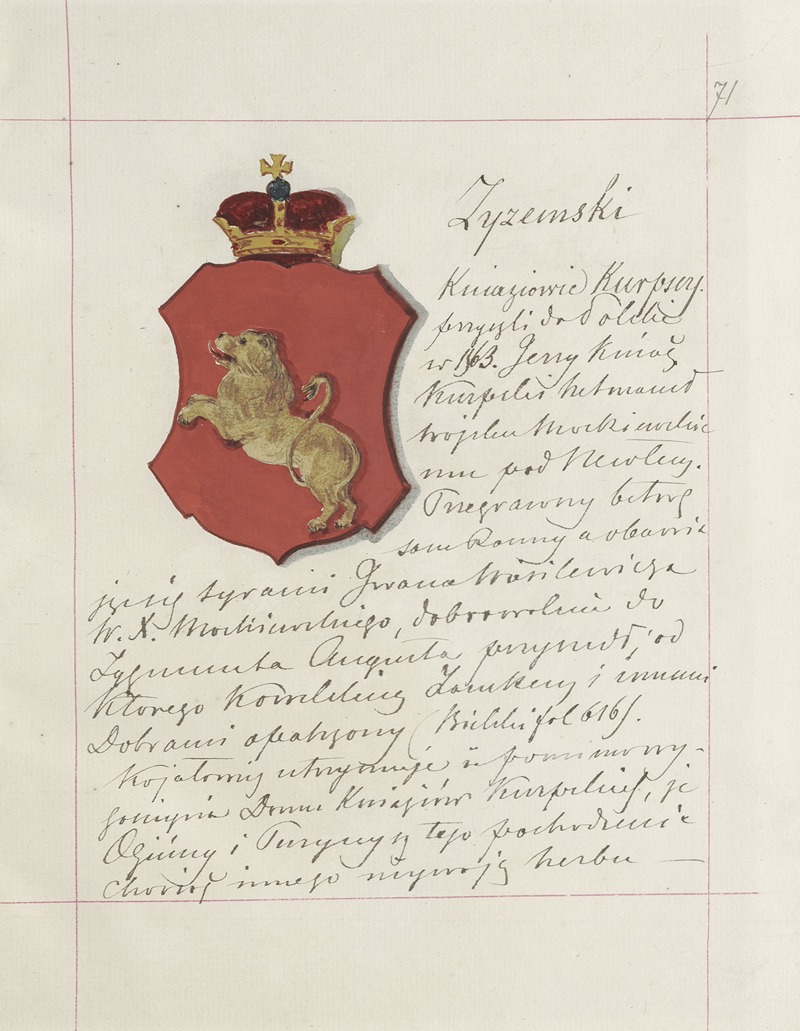 71
Zyzemski
Kniaziowie Kurpscy
przyszli do Polski
w 1563. Jerzy Kniaź
Kurpski hetmanił
wojsku Moskiewskie
mu pod Newlem.
Przegrawszy bitwę
sam Ranny a obawia
jąc się tyranii Iwana Wasilewicza
W. X. Moskiewskiego, dobrowolnie do
Zygmunta Augusta przyszedł, od
którego Kowelskim Zamkiem i innemi
Dobrami opatrzony (Bielski fol 616).
Kojałowicz utrzymuje iż pomimo wy-
gaśnięcia Domu Kniaziów Kurpskich, je
Ogińscy i Puzyny są tego pochodzenia
chociaż innego używają herbu —